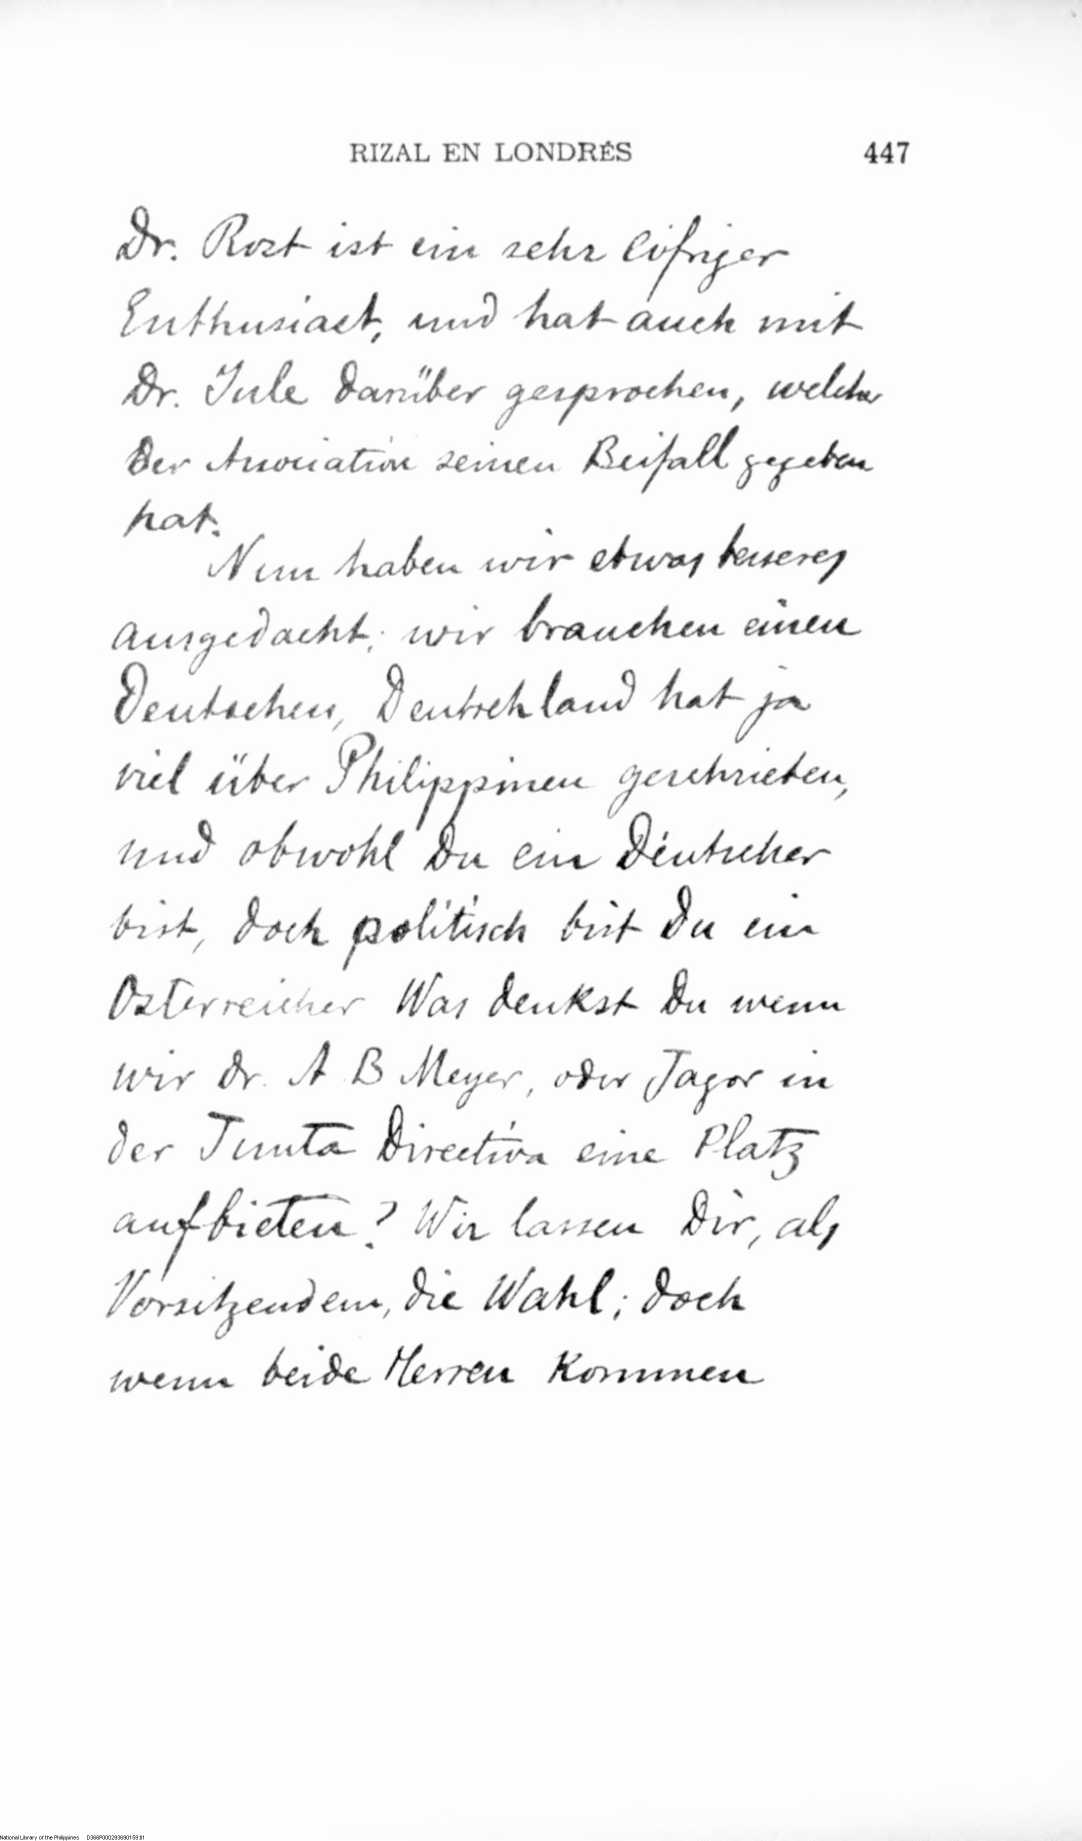 RIZAL EN LONDRÉS 447
Dr. Rost ist ein sehr eifriger
Enthusiast, und hat auch mit
Dr. Jule darüber gesprochen, welcher
der Association seinen Beifall gegeben
hat.
Nun haben wir etwas besseres
ausgedacht; wir brauchen einen
Deutschen, Deutschland hat ja
viel über Philippinen geschrieben,
und obwohl Du ein Deutscher
bist, doch politisch bist Du ein
Osterreicher Was denkst Du wenn
wir Dr. A B Meyer, oder Jagor in
der Junta Directiva eine Platz
aufbieten? Wir lassen Dir, als
Vorsitzendem, die Wahl; doch
wenn beide Herren kommen
National Library of the Philippines